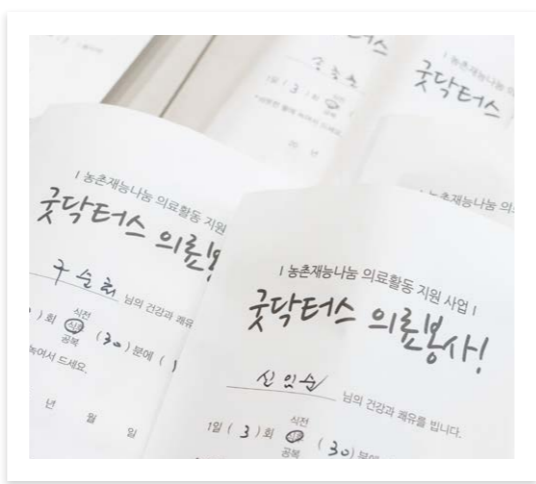 굿닥터스
1일 ( 3 ) 회 식전
년
| 농촌재능나눔 의료활동 지원
굿닥터스 의료봉
구순희 님의 건강과 쾌유
) 회 식전 식후 공복 ( 30 ) 분에 (
녹여서 드세요.
년 월 일
| 농촌재능나눔 의료활동 지원 사업 |
굿닥터스 의료봉사!
신임순 님의 건강과 쾌유를 빕니다.
1일 ( 3 ) 회 식전 식후 공복 ( 30 ) 분에